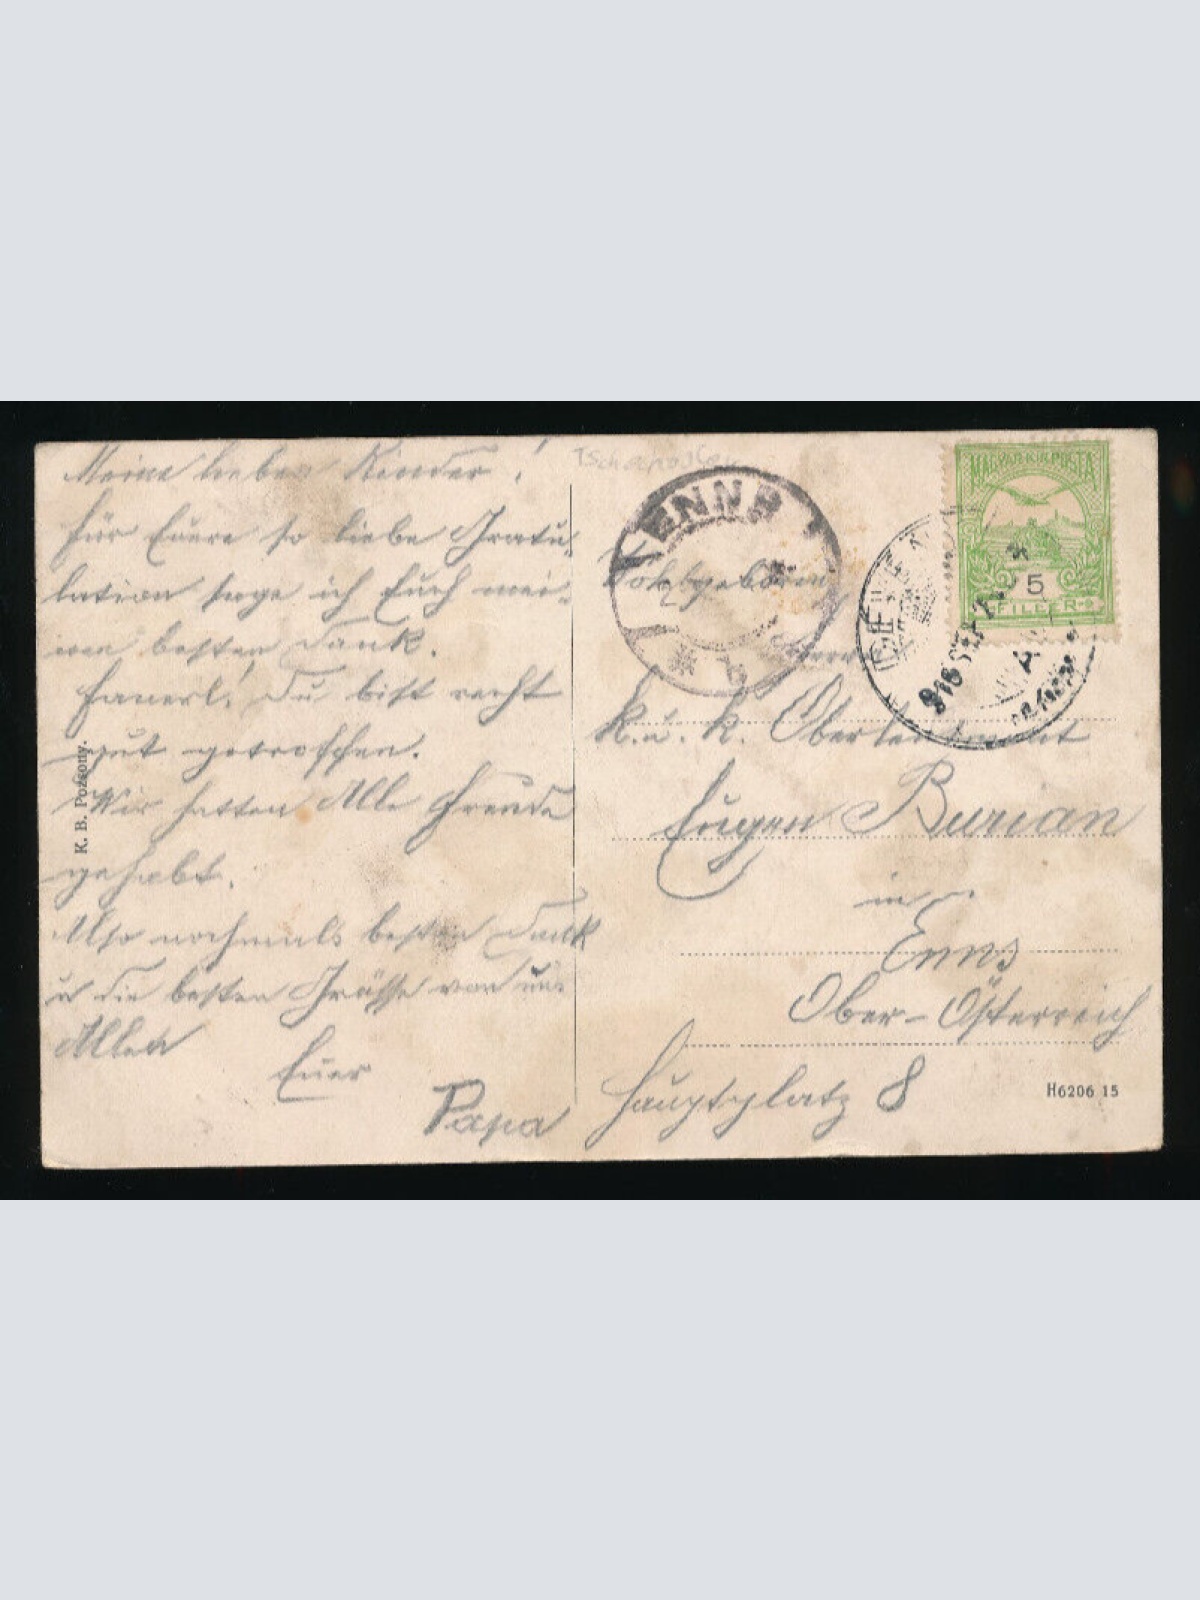 Meine lieben Kinder!
für Euere so liebe Gratu-
lation sage ich Euch mei-
nen besten Dank.
Du bist recht
gut getroffen.
Wir hatten Alle Freude
gehabt.
Also nochmals besten Dank
u die besten Grüsse von uns
Allen
Euer
Papa
K. B. Pozsony.
ENNS
MAGYAR KIR. POSTA
5
FILLER
916 SZE
Wohlgeboren
Herrn
k. u. k. Oberleutnant
Eugen Burian
in
Enns
Ober-Österreich
Hauptplatz 8
H6206 15